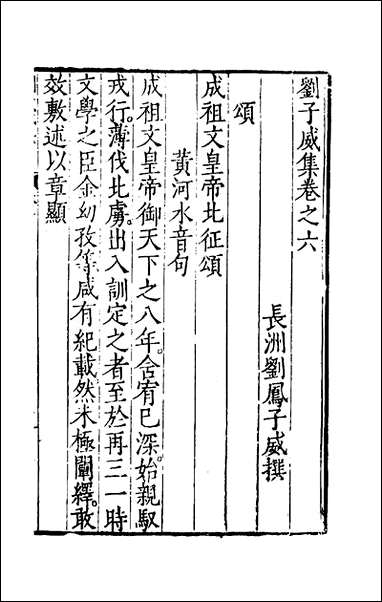 劉子威集卷之六
長洲劉鳳子威撰
頌
成祖文皇帝北征頌
黃河水音句
成祖文皇帝御天下之八年舍宥已深始親馭
戎行薄伐北虜出入訓定之者至於再三一時
文學之臣金幼孜等咸有紀載然未極闡繹敢
效敷述以章顯